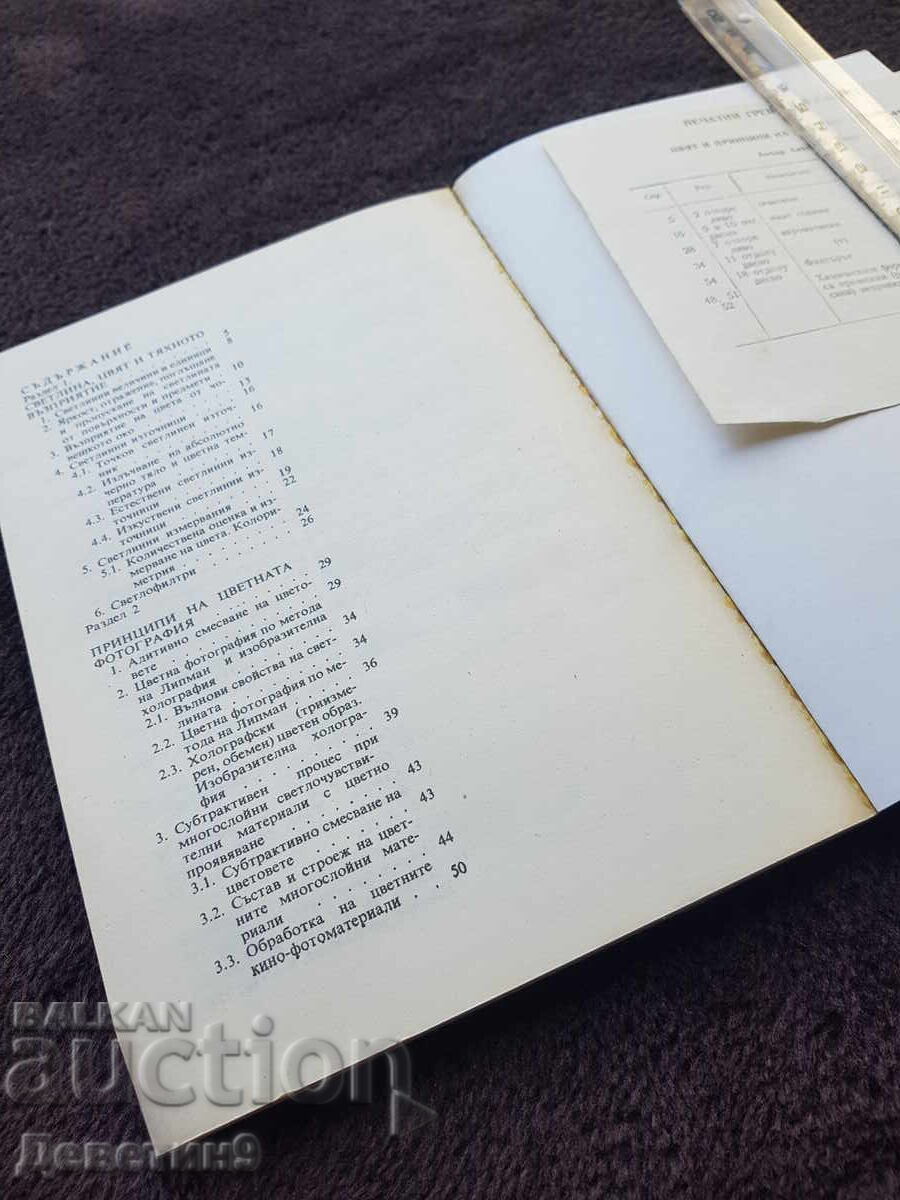 СЪДЪРЖАНИЕ
Раздел 1
СВЕТЛИНА, ЦВЯТ И ТЯХНОТО
ВЪЗПРИЯТИЕ 5
1. Светлинни величини и единици 8
2. Яркост, отражение, поглъщане
и пропускане на светлината
от повърхности и предмети 10
3. Възприятие на цвета от чо-
вешкото око 13
4. Светлинни източници 16
4.1. Точков светлинен източ-
ник 16
4.2. Излъчване на абсолютно
черно тяло и цветна тем-
пература 17
4.3. Естествени светлинни из-
точници 18
4.4. Изкуствени светлинни из-
точници 19
5. Светлинни измервания 22
5.1. Количествена оценка и из-
мерване на цвета. Колори-
метрия 24
6. Светлофилтри 26
Раздел 2
ПРИНЦИПИ НА ЦВЕТНАТА
ФОТОГРАФИЯ 29
1. Адитивно смесване на цвето-
вете 29
2. Цветна фотография по метода
на Липман и изобразителна
холография 34
2.1. Вълнови свойства на свет-
лината 34
2.2. Цветна фотография по ме-
тода на Липман 36
2.3. Холографски (триизме-
рен, обемен) цветен образ.
Изобразителна хологра-
фия 39
3. Субтрактивен процес при
многослойни светлочувстви-
телни материали с цветно
проявяване 43
3.1. Субтрактивно смесване на
цветовете 43
3.2. Състав и строеж на цвет-
ните многослойни мате-
риали 44
3.3. Обработка на цветните
кино-фотоматериали 50
ПЕЧАТНИ
ЦВЯТ И ПРИНЦИПИ НА
Стр. Ред
5 2 отгоре ляво
16 9 и 10 дясно
28 7 отгоре ляво
34 11 отдолу дясно Факторът
54 18 отдолу дясно
48, 51
52
BALKAN
auction
Деветин9